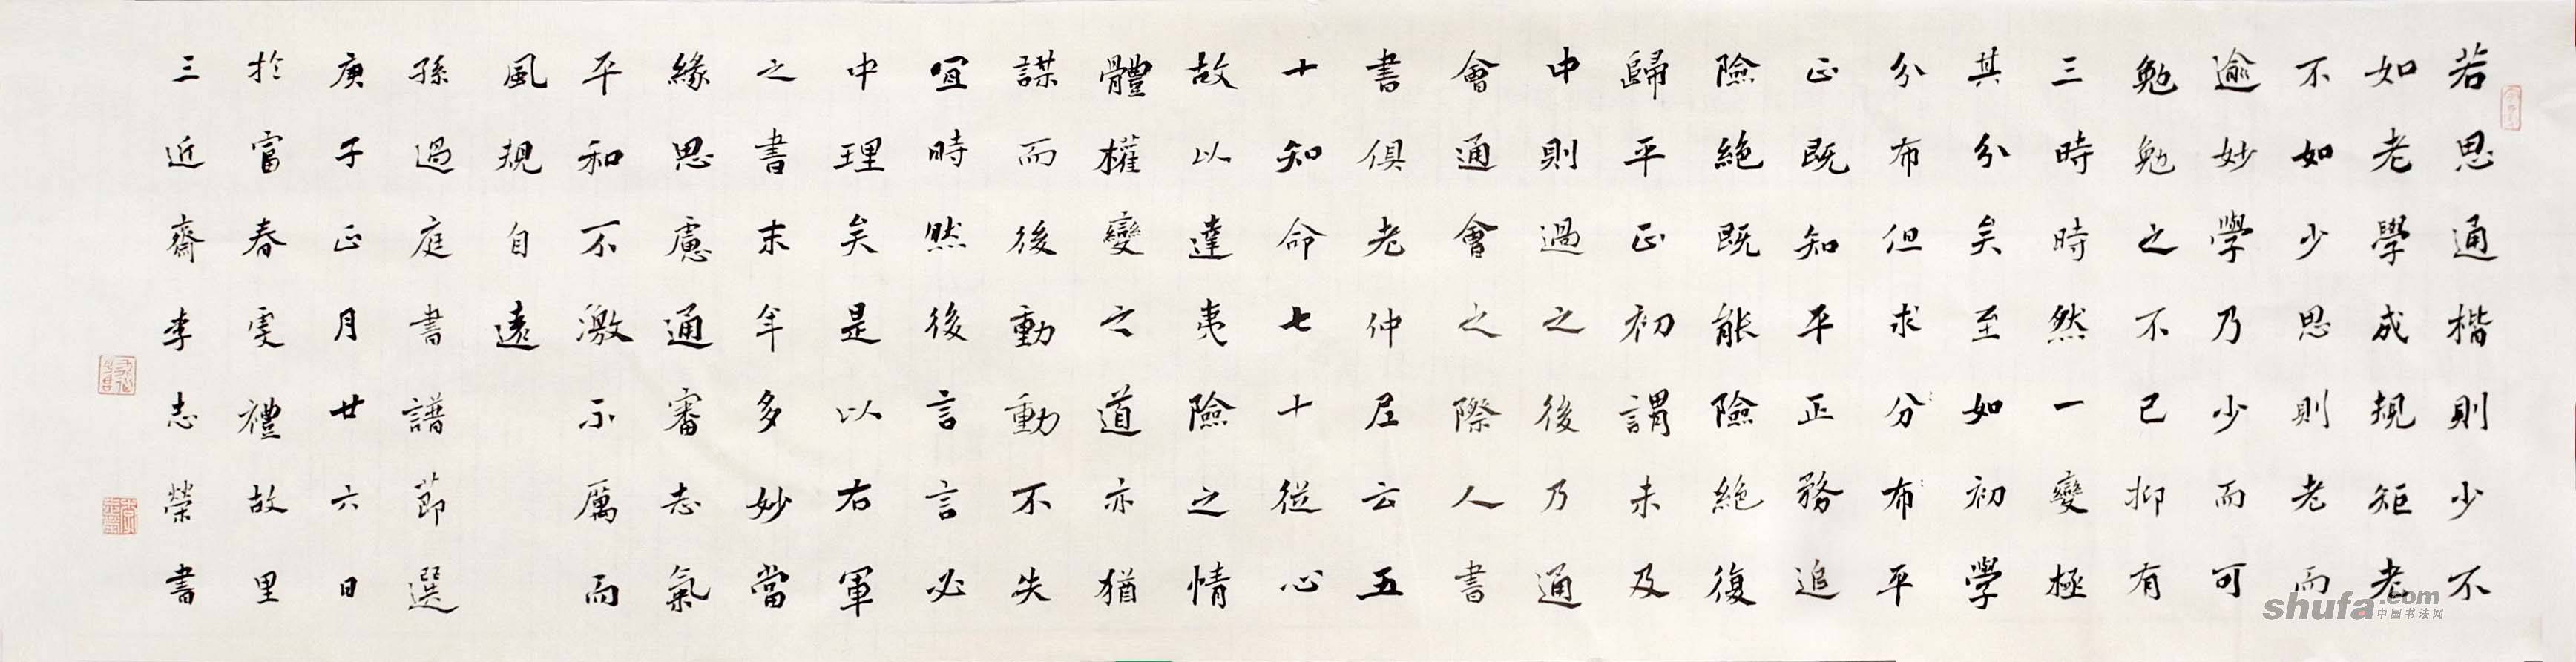 若思通楷則少不
如老學成規矩老
不如少思則老而
逾妙學乃少而可
勉勉之不已抑有
三時時然一變極
其分矣至如初學
分布但求分布平
正既知平正務追
險絕既能險絕復
歸平正初謂未及
中則過之後乃通
會通會之際人書
書俱老仲尼云五
十知命七十從心
故以達夷險之情
體權變之道亦猶
謀而後動動不失
宜時然後言言必
中理矣是以右軍
之書末年多妙當
緣思慮通審志氣
平和不激不厲而
風規自遠
孫過庭書譜節選
庚子正月廿六日
於富春雯禮故里
三近齋李志榮書
shufa.com
中国书法网